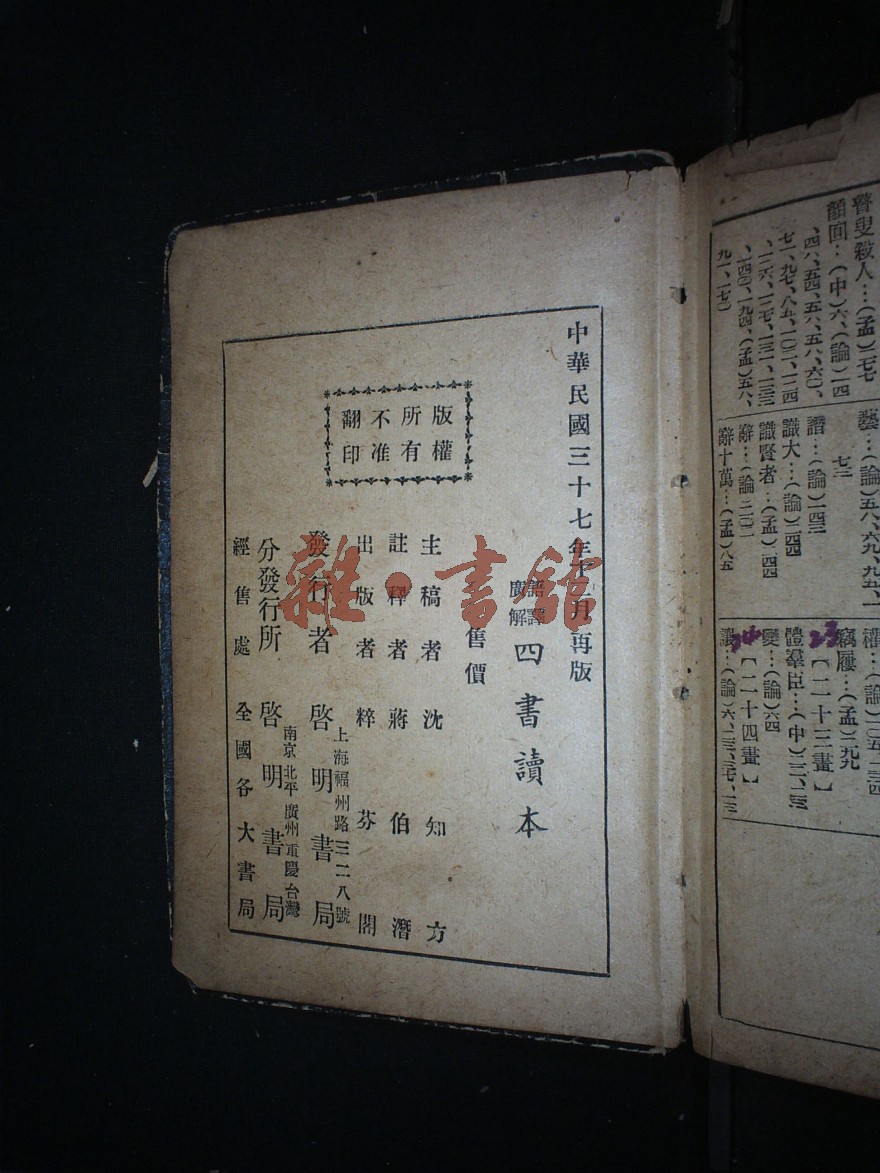 瞽叟殺人…(孟)二七七
顏回…(中)六、(論)一四
、四六、五四、五六、五八、六〇、
七一、九七、八五、一〇二、一一四
、一二六、一二七、一三一、一三三
、一四〇、一九四、(孟)五八、
九一、一七〇
藝…(論)五八、六九、九五、一
七三
譖…(論)一四三
識大…(論)二四四
識賢者…(孟)二四四
辭…(論)二〇二
辭十萬…(孟)八五
竊屨…(孟)二九九
23
【二十三畫】
體羣臣…(中)二二、二三
變…(論)六四
24
【二十四畫】
讓…(論)六、二三、三七、一三
中華民國三十七年十二月再版
版權
所有
不准
翻印
語譯
廣解
四書讀本
售價
主稿者 沈知方
註釋者 蔣伯潛
出版者 粹芬閣
上海福州路三二八號
發行者 啓明書局
南京 北平 廣州 重慶 台灣
分發行所 啓明書局
經售處 全國各大書局
雜·書舘